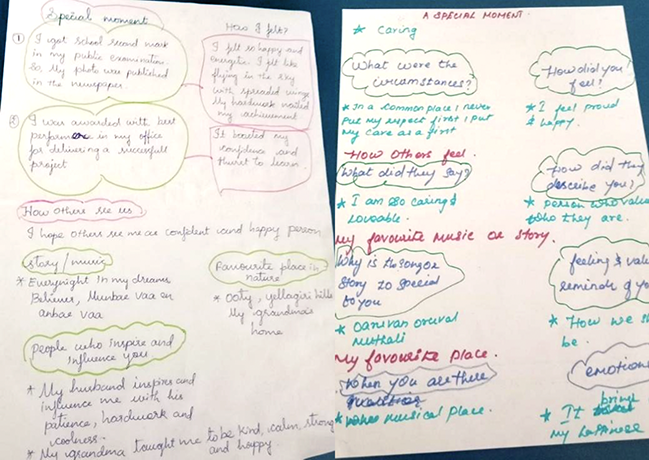 Special moment
How I felt?
① I got School Second mark
in my public examination.
So, My photo were published
in the newspaper.
I felt so happy and
energetic. I felt like
flying in the sky
with spreaded wings.
My hardwork
my achievement
② I was awarded with best
performence in my office
for delivering a successfull
project
It boosted my
confidence and
to learn.
How others see us
I hope others see me as confident and happy person
story/music
* Everynight in my dreams
Believer, Munbae vaa en
anbae vaa
Favourite place in
nature
* Ooty, yellagiri hills
My grandma's
home
People who Inspire and
Influence you
* My husband inspires and
influence me with his
patience, hardwork and
coolness.
* My grandma taught me to be kind, calm, strong
and happy.
A SPECIAL MOMENT
* Caring
What were the
circumstances?
How did you
feel!
* In a common place, I never
put my respect first, I put
my care as a first
* I feel proud
& happy.
How others feel.
What did they say?
How did they
describe you?
* I am so caring &
Loveable.
* person who value
who they are.
My favourite music or story.
Why is the song or
story so special
to you
feeling & valu
reminds of yo
* Oruvan oruvan
* How we sh
be.
My favourite place.
When you are there
emotions
* musical place.
* It bring
my happiness